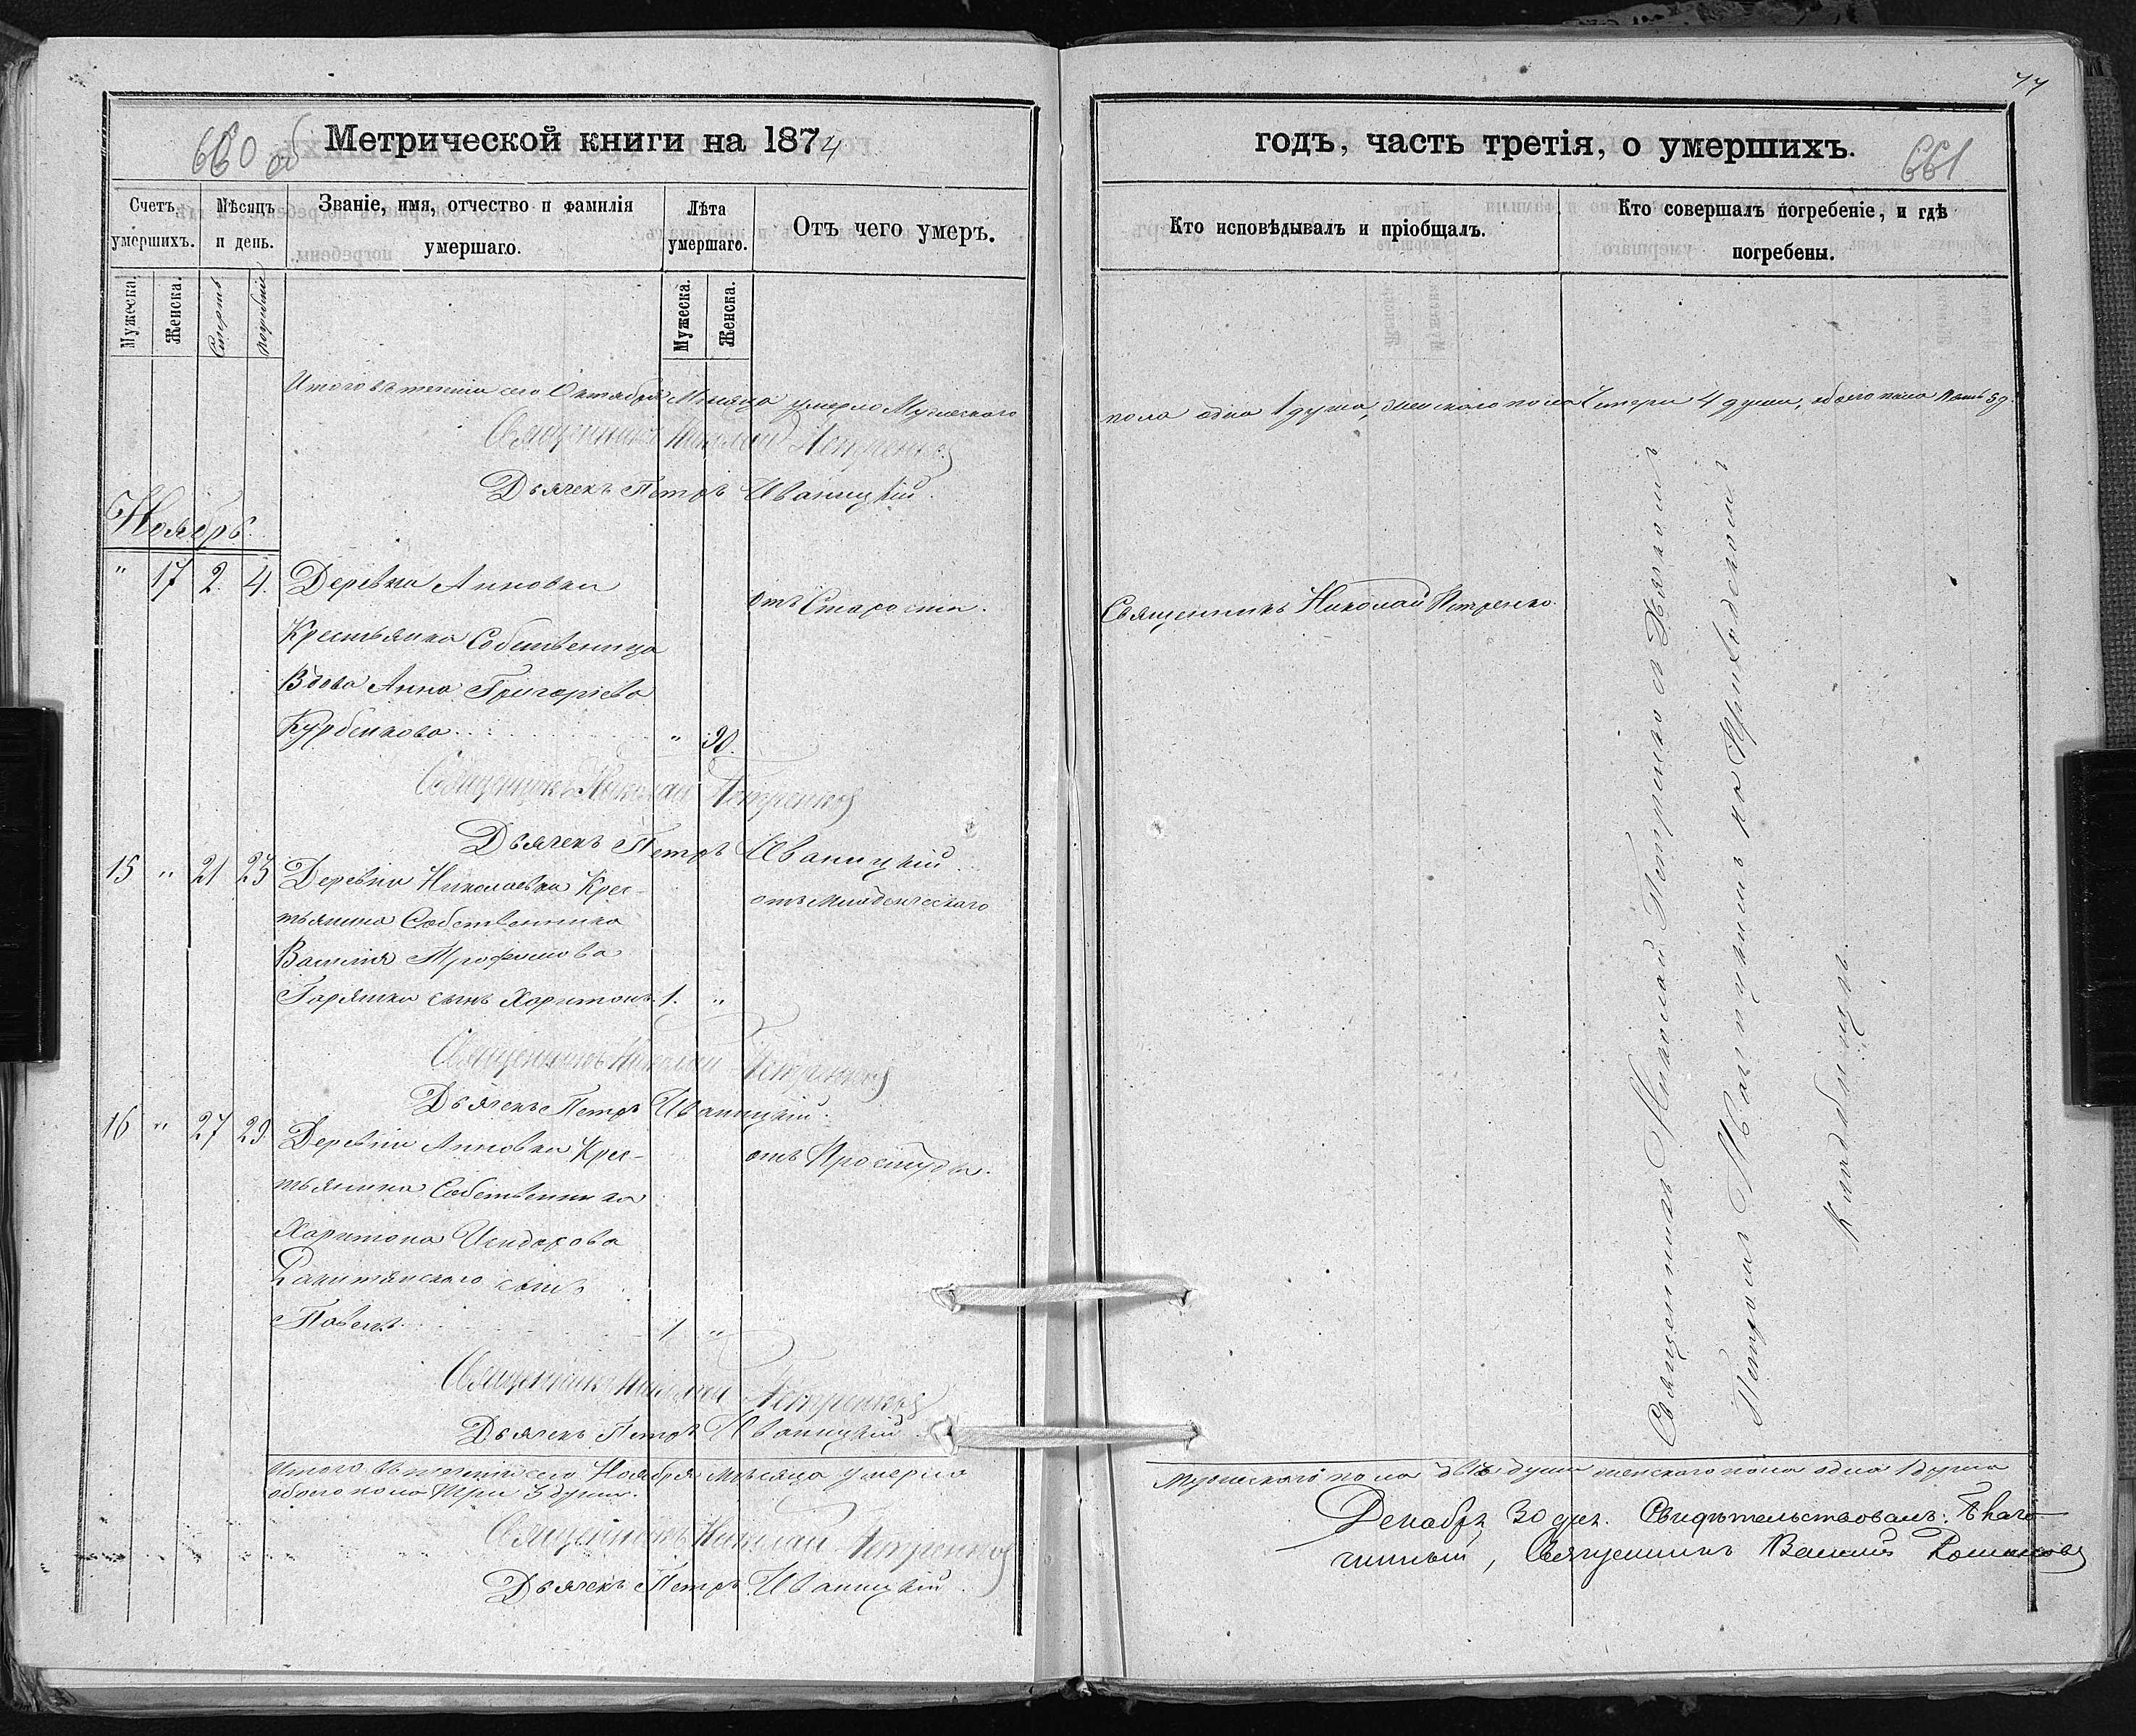 77
660 об
Метрической книги на 1874
годъ, часть третія, о умершихъ.
661
Счетъ умершихъ.
Мѣсяцъ и день.
Званіе, имя, отчество и фамилія умершаго.
Лѣта умершаго.
Отъ чего умеръ.
Кто исповѣдывалъ и пріобщалъ.
Кто совершалъ погребеніе, и гдѣ погребены.
Мужеска.
Женска.
Смерть
погребеніе
Мужеска.
Женска.
Итого въ теченіи сего Октября Месяца умерло Мужескаго
пола одна 1 душа, женскаго пола Четыри 4 души, обоего пола Пять 5 д.
Священникъ Николай Петренко
Дьячекъ Петръ Иваницкій.
Ноябрь.
" 17 2. 4. Деревна Анновки
Крестьянка Собственица
Вдова Анна Григоріева
Курбенкова " 90.
отъ Старости.
Священникъ Николай Петренко.
Священникъ Николай Петренко
Дьячекъ Петръ Иваницкій.
15 " 21 23 Деревни Николаевки Крес-
тьянина Собственника
Василія Трофимова
Горяшка сынъ Харитонъ. 1. "
отъ Младенческаго
Священникъ Николай Петренко
Дьячекъ Петръ Иваницкій.
16 " 27 29 Деревни Анновки Крес-
тьянина Собственика
Харитона Исидорова
Ракитянскаго сынъ
Павелъ. 1 "
отъ Простуды.
Священникъ Николай Петренко
Дьячекъ Петръ Иваницкій.
Священникъ Николай Петренко съ Дьячкомъ
Петромъ Иваницкимъ на Приходскомъ
Кладбищѣ.
Итого въ теченіи сего Ноября мѣсяца умерло
обоего пола Три 3 души.
Мужескаго пола двѣ души женскаго пола одна 1 душа
Священникъ Николай Петренко
Дьячекъ Петръ Иваницкій.
Декабря 30 дня. Свидѣтельствовалъ: Благо-
чинный, Священникъ Василій Романовъ